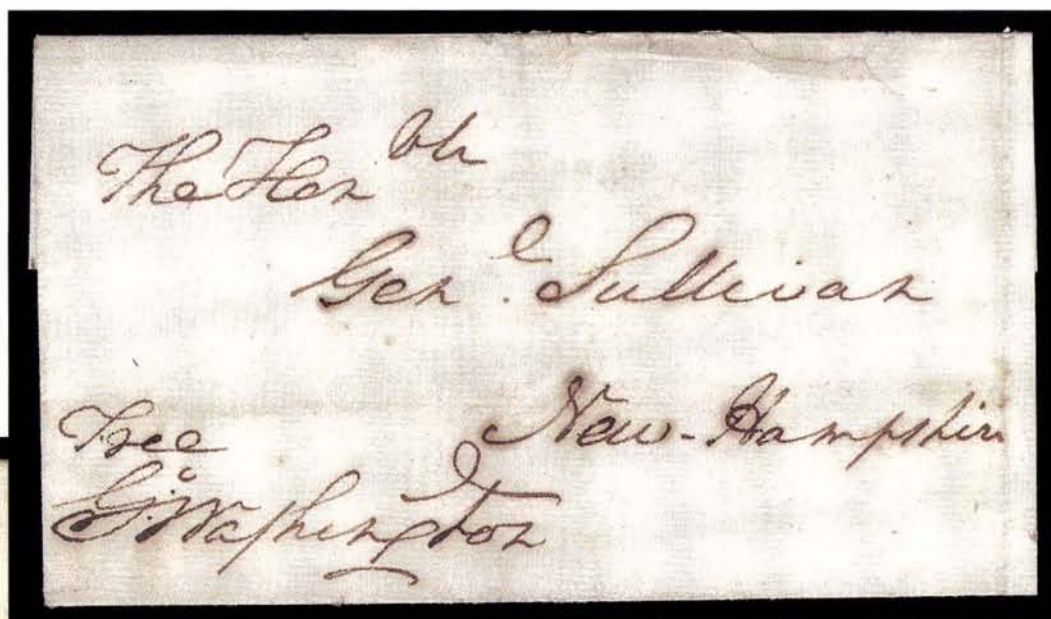 The Hon^ble
Gen^l. Sullivan
New-Hampshire
Free
G^o: Washington